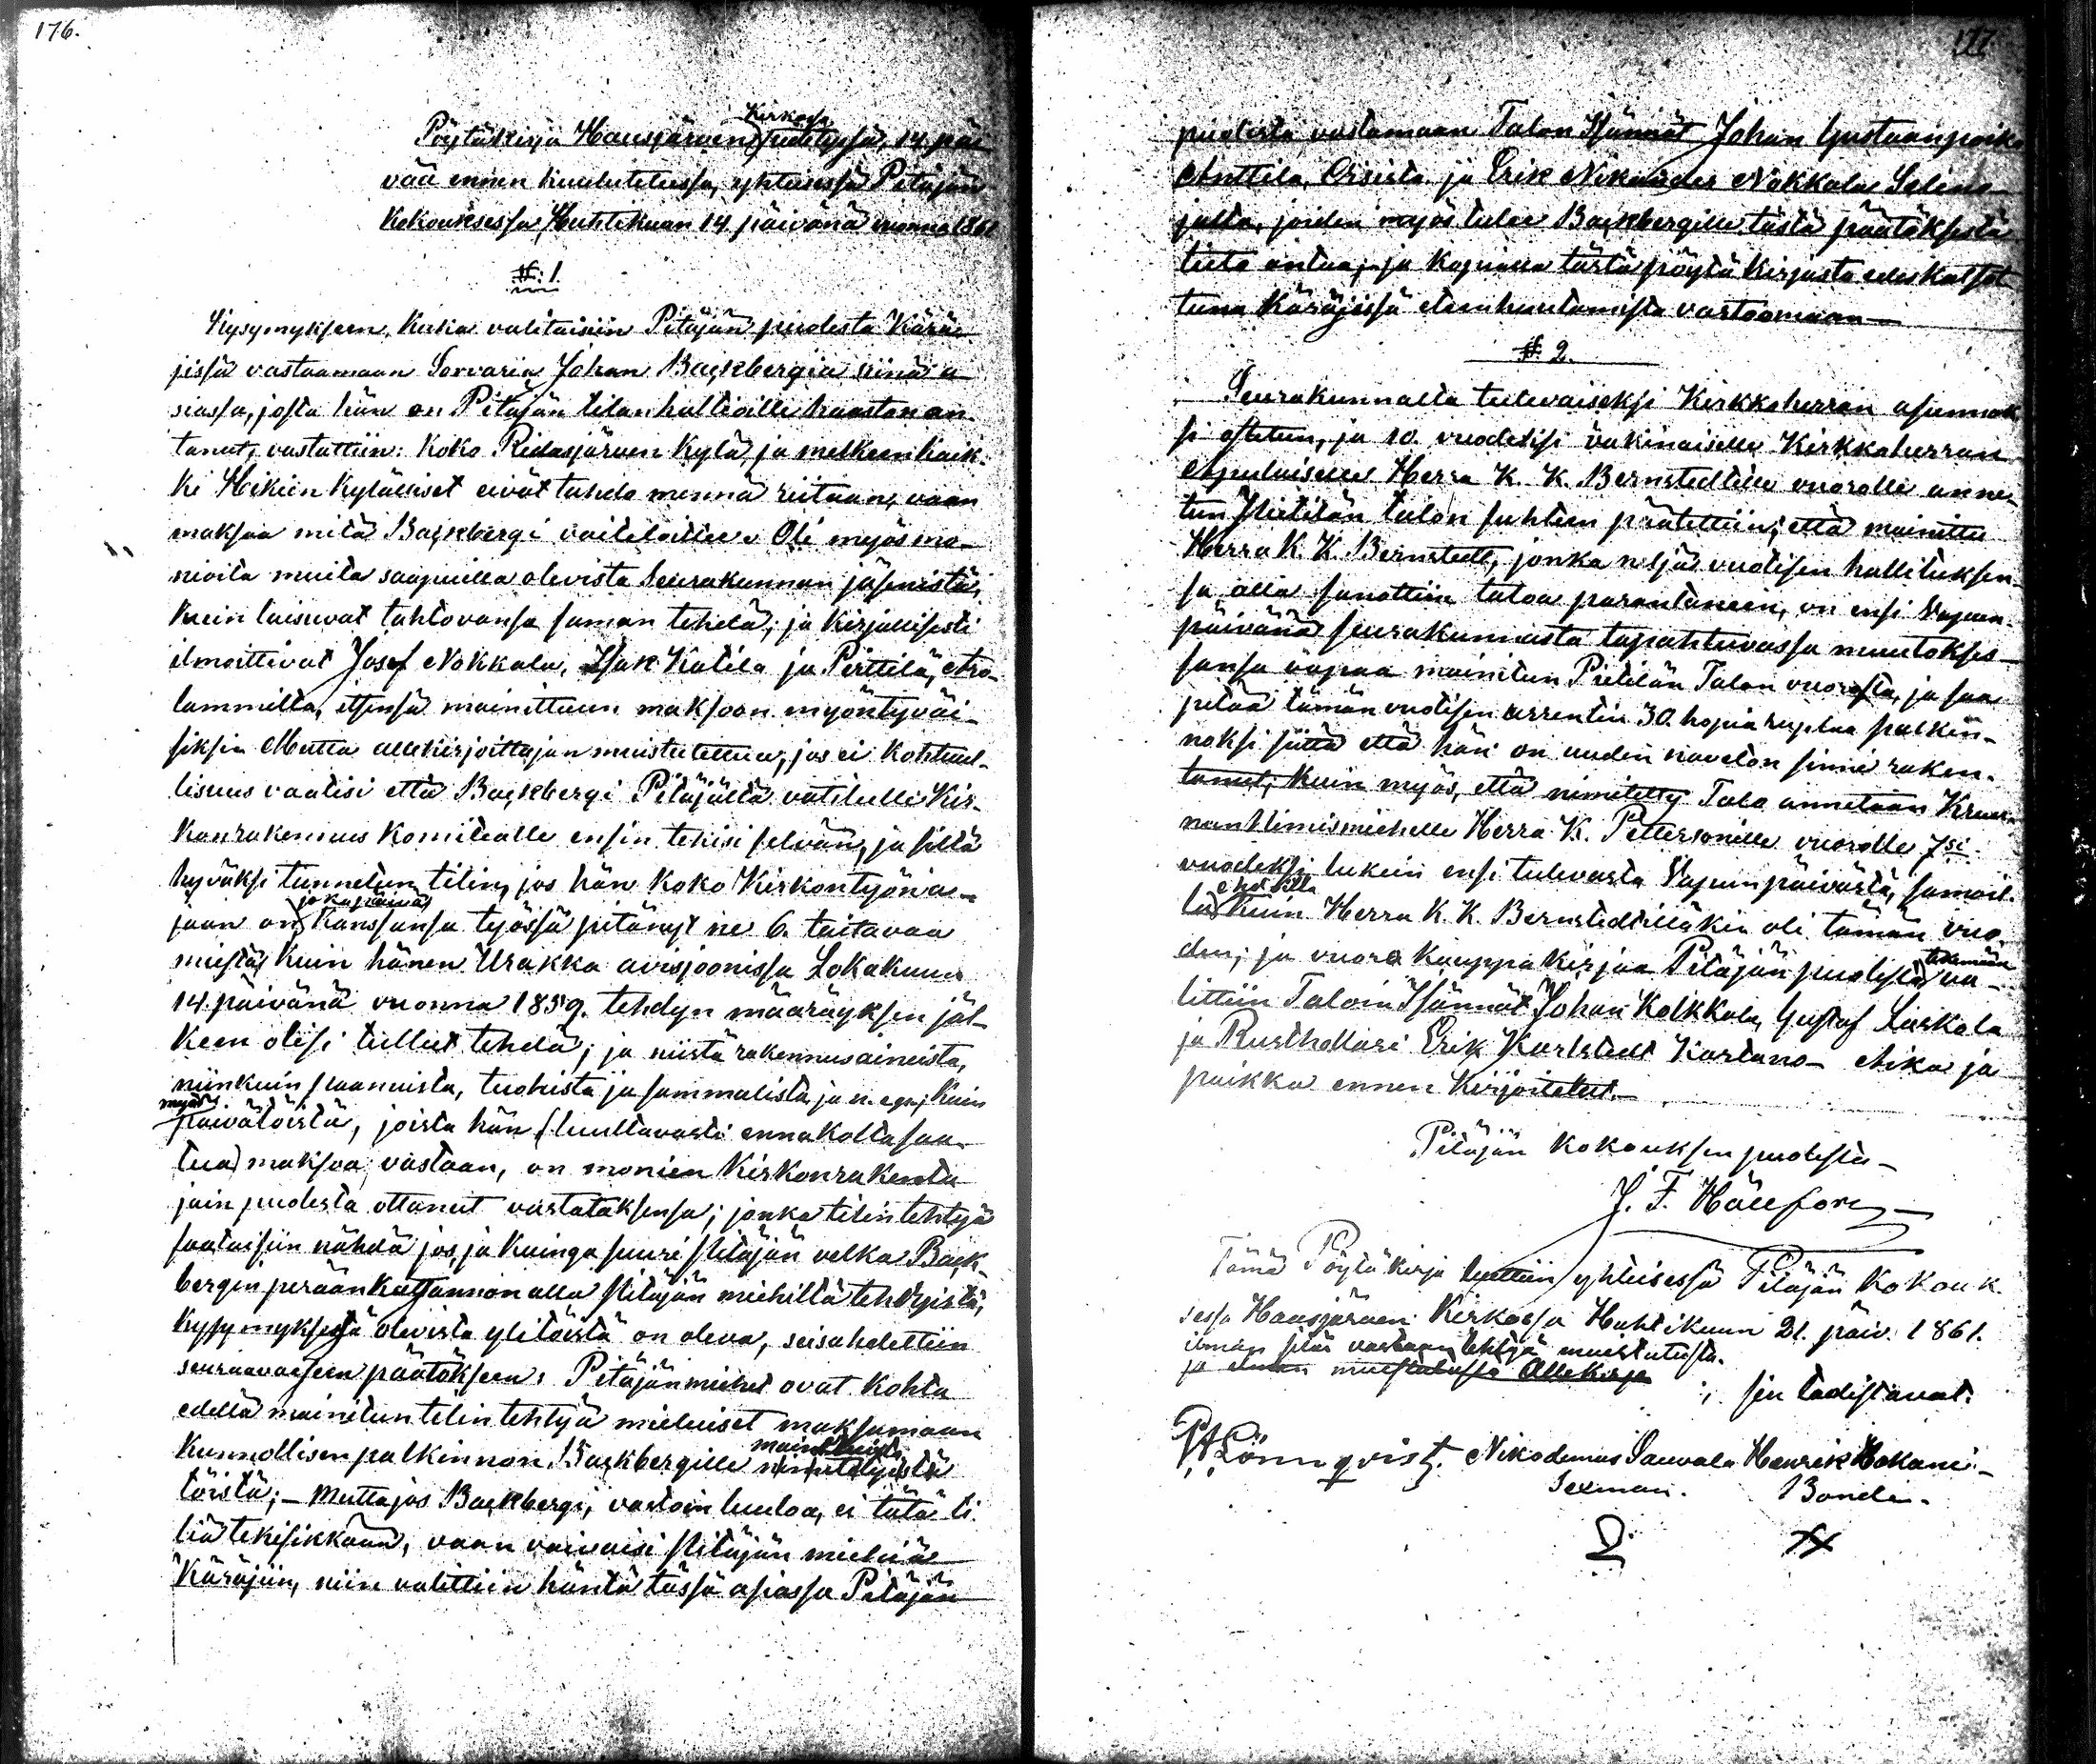 176.
Pöytäkirja Hausjärven Kirkosa pidetyssä, 14 päi
vää ennen kuulutetussa, yhteisessä Pitäjän
Kokouksessa Huhtikuun 14 päivänä vuonna 1861
§ 1
Kysymykseen, kuka valitaisiin Pitäjän puolesta Kärä-
jissä vastaamaan Sorvaria Johan Backbergia siinä a
siassa, josta hän on Pitäjän tilanhaltioille haaston an-
tanut, vastattiin: koko Ridasjärven kylä, ja melkeen kaik-
ki Hikiän kyläiset eivät tahdo mennä riitaan, vaan
maksaa mitä Backbergi vaitelitee. Oli myös mo-
nioita muita saapuilla olevista Seurakunnan jäsenistä,
kuin laisuvat tahtovansa saman tehdä; ja kirjallisesti
ilmoittivat Josef Nokkala, Isak Katila ja Pirttilä, Aro-
lammilta, itsensä mainittuun maksoon myöntyväi-
siksi. Mutta allekirjoittajan muistutettua, jos ei kohtuul-
lisuus vaatisi että Backbergi Pitäjältä vatitulle Kir-
konrakennus Komitealle ensin tekisi selvän, ja sillä
hyväksi tunnetun tilin, jos hän koko Kirkontyön ai-
jaan on jokapäivä kanssansa työssä pitänyt ne 6. taitavaa
miestä, kuin hänen Urakka avisjoonissa Lokakuun
14. päivänä vuonna 1859. tehdyn määräyksen jäl-
keen olisi tullut tehdä; ja niistä rakennusaineista,
niinkuin saanuista, tuohista ja sammalista, ja n. egn; kuin
myös päivätöistä, joista hän (luultavasti ennakolta saa-
tua) maksoa vastaan, on monien Kirkonrakenta
jain puolesta ottanut vastataksensa; jonka tilin tehtyä
saataisiin nähdä jos, ja kuinga suuri Pitäjän velka Back-
bergin peräänkatsannon alla Pitäjän miehiltä tehdyistä,
kysymyksessä olevista ylitöistä on oleva, seisahdettiin
seuraavaiseen päätökseen: Pitäjänmiehet ovat kohta
edellä mainitun tilin tehtyä mieluiset maksamaan
kunnollisen palkinnon Backbergille mainituista nimitetyistä
töistä; – Mutta jos Backbergi, vastoin luuloa, ei tätä ti
liä tekisikkään, vaan vaivaisi Pitäjän miehiä
Käräjiin, niin valittiin häntä tässä asiassa Pitäjän
177.
puolesta vastamaan Talon Isännät Johan Gustaanpoika
Anttila, Oisista ja Erik Nikander Nokkala Selinä-
jalta, joiden myös tulee Backbergille tästä päätöksestä
tieto antaa, ja kopiaa tästä pöytäkirjasta edeskatsot
tuna Käräjissä etenhuutamista vastoomaan —
§ 2.
Seurakunnalta tulevaiseksi Kirkkoherran asunnok
si ostetun, ja 10. vuodeksi väkinäiselle Kirkkoherran
Apulaiselle Herra K. K. Bernstedtille vuorolle anne-
tun Pietilän talon suhteen päätettiin; että mainittu
Herra K. K. Bernstedt, jonka neljä vuotisen hallituksen-
sa alla sanottiin taloa parantaneen, on ensi Vapun
päivänä seurakunnasta tapahtuvassa muutokses-
sansa vapaa mainitun Pietilän Talon vuorosta, ja saa
pitää tämän vuotisen arrentin 30. hopia ruplaa palkin-
noksi siitä että hän on uuden navetan sinne raken-
tanut; kuin myös, että nimitetty Talo annetaan Kruu-
nun Nimismiehelle Herra K. Pettersonille vuorolle 7si
vuodeksi lukein ensi tulevasta Vapunpäivästä, samoil-
la ehdoilla kuin Herra K. K. Bernstedtilläkin oli tämän vuo
den; ja vuora kauppakirjaa Pitäjän puolesta tekemään va-
littiin Taloin Isännät Johan Kolkkala, Gustaf Laskala
ja Rusthollari Erik Karlstedt Kartano – Aika ja
paikka ennen kirjoitetut. —
Pitäjän Kokouksen puolesta –
J. F. Hällfors
Tämä Pöytäkirja luettiin yhteisessä Pitäjän kokouk
sessa Hausjärven Kirkossa Huhtikuun 21. päiv. 1861.
ilman sitä vastaan tehtyä muistutusta.
ja ilman muistutusta Allekirja
; sen todistavat.
W Lönnqvist. Nikodemus Sauvala Henrik Hokani –
Sexman. Bonde.